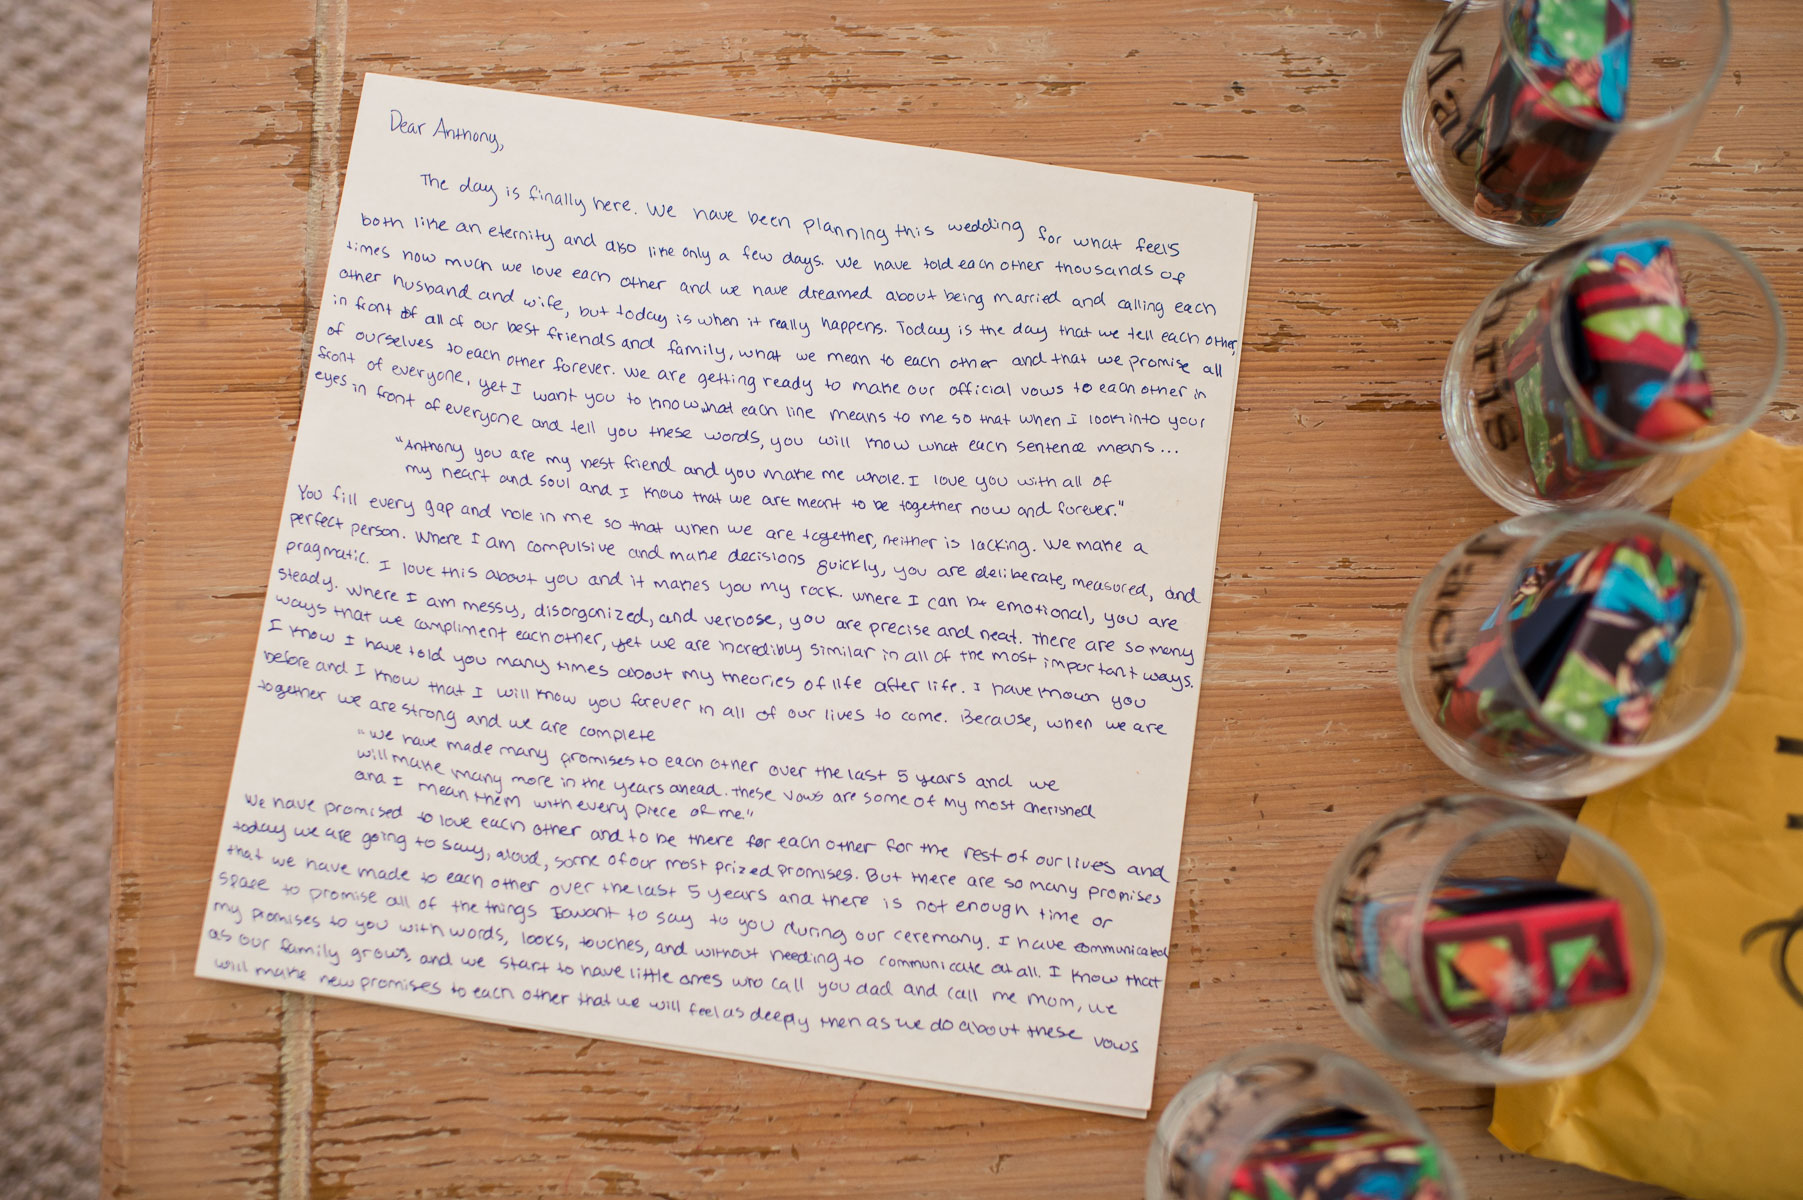 Dear Anthony,
The day is finally here. We have been planning this wedding for what feels
both like an eternity and also like only a few days. We have told each other thousands of
times how much we love each other and we have dreamed about being married and calling each
other husband and wife, but today is when it really happens. Today is the day that we tell each other,
in front of all of our best friends and family, what we mean to each other and that we promise all
of ourselves to each other forever. We are getting ready to make our official vows to each other in
front of everyone, yet I want you to know what each line means to me so that when I look into your
eyes in front of everyone and tell you these words, you will know what each sentence means...
"Anthony you are my best friend and you make me whole. I love you with all of
my heart and soul and I know that we are meant to be together now and forever."
You fill every gap and hole in me so that when we are together, neither is lacking. We make a
perfect person. Where I am compulsive and make decisions quickly, you are deliberate, measured, and
pragmatic. I love this about you and it makes you my rock. Where I can be emotional, you are
steady. Where I am messy, disorganized, and verbose, you are precise and neat. There are so many
ways that we compliment each other, yet we are incredibly similar in all of the most important ways.
I know I have told you many times about my theories of life after life. I have known you
before and I know that I will know you forever in all of our lives to come. Because, when we are
together we are strong and we are complete
"We have made many promises to each other over the last 5 years and we
will make many more in the years ahead. These vows are some of my most cherished
and I mean them with every piece of me"
We have promised to love each other and to be there for each other for the rest of our lives and
today we are going to say, aloud, some of our most prized promises. But there are so many promises
that we have made to each other over the last 5 years and there is not enough time or
space to promise all of the things I want to say to you during our ceremony. I have communicated
my promises to you with words, looks, touches, and without needing to communicate at all. I know that
as our family grows, and we start to have little ones who call you dad and call me mom, we
will make new promises to each other that we will feel as deeply then as we do about these vows
Matt
Chris
Jack